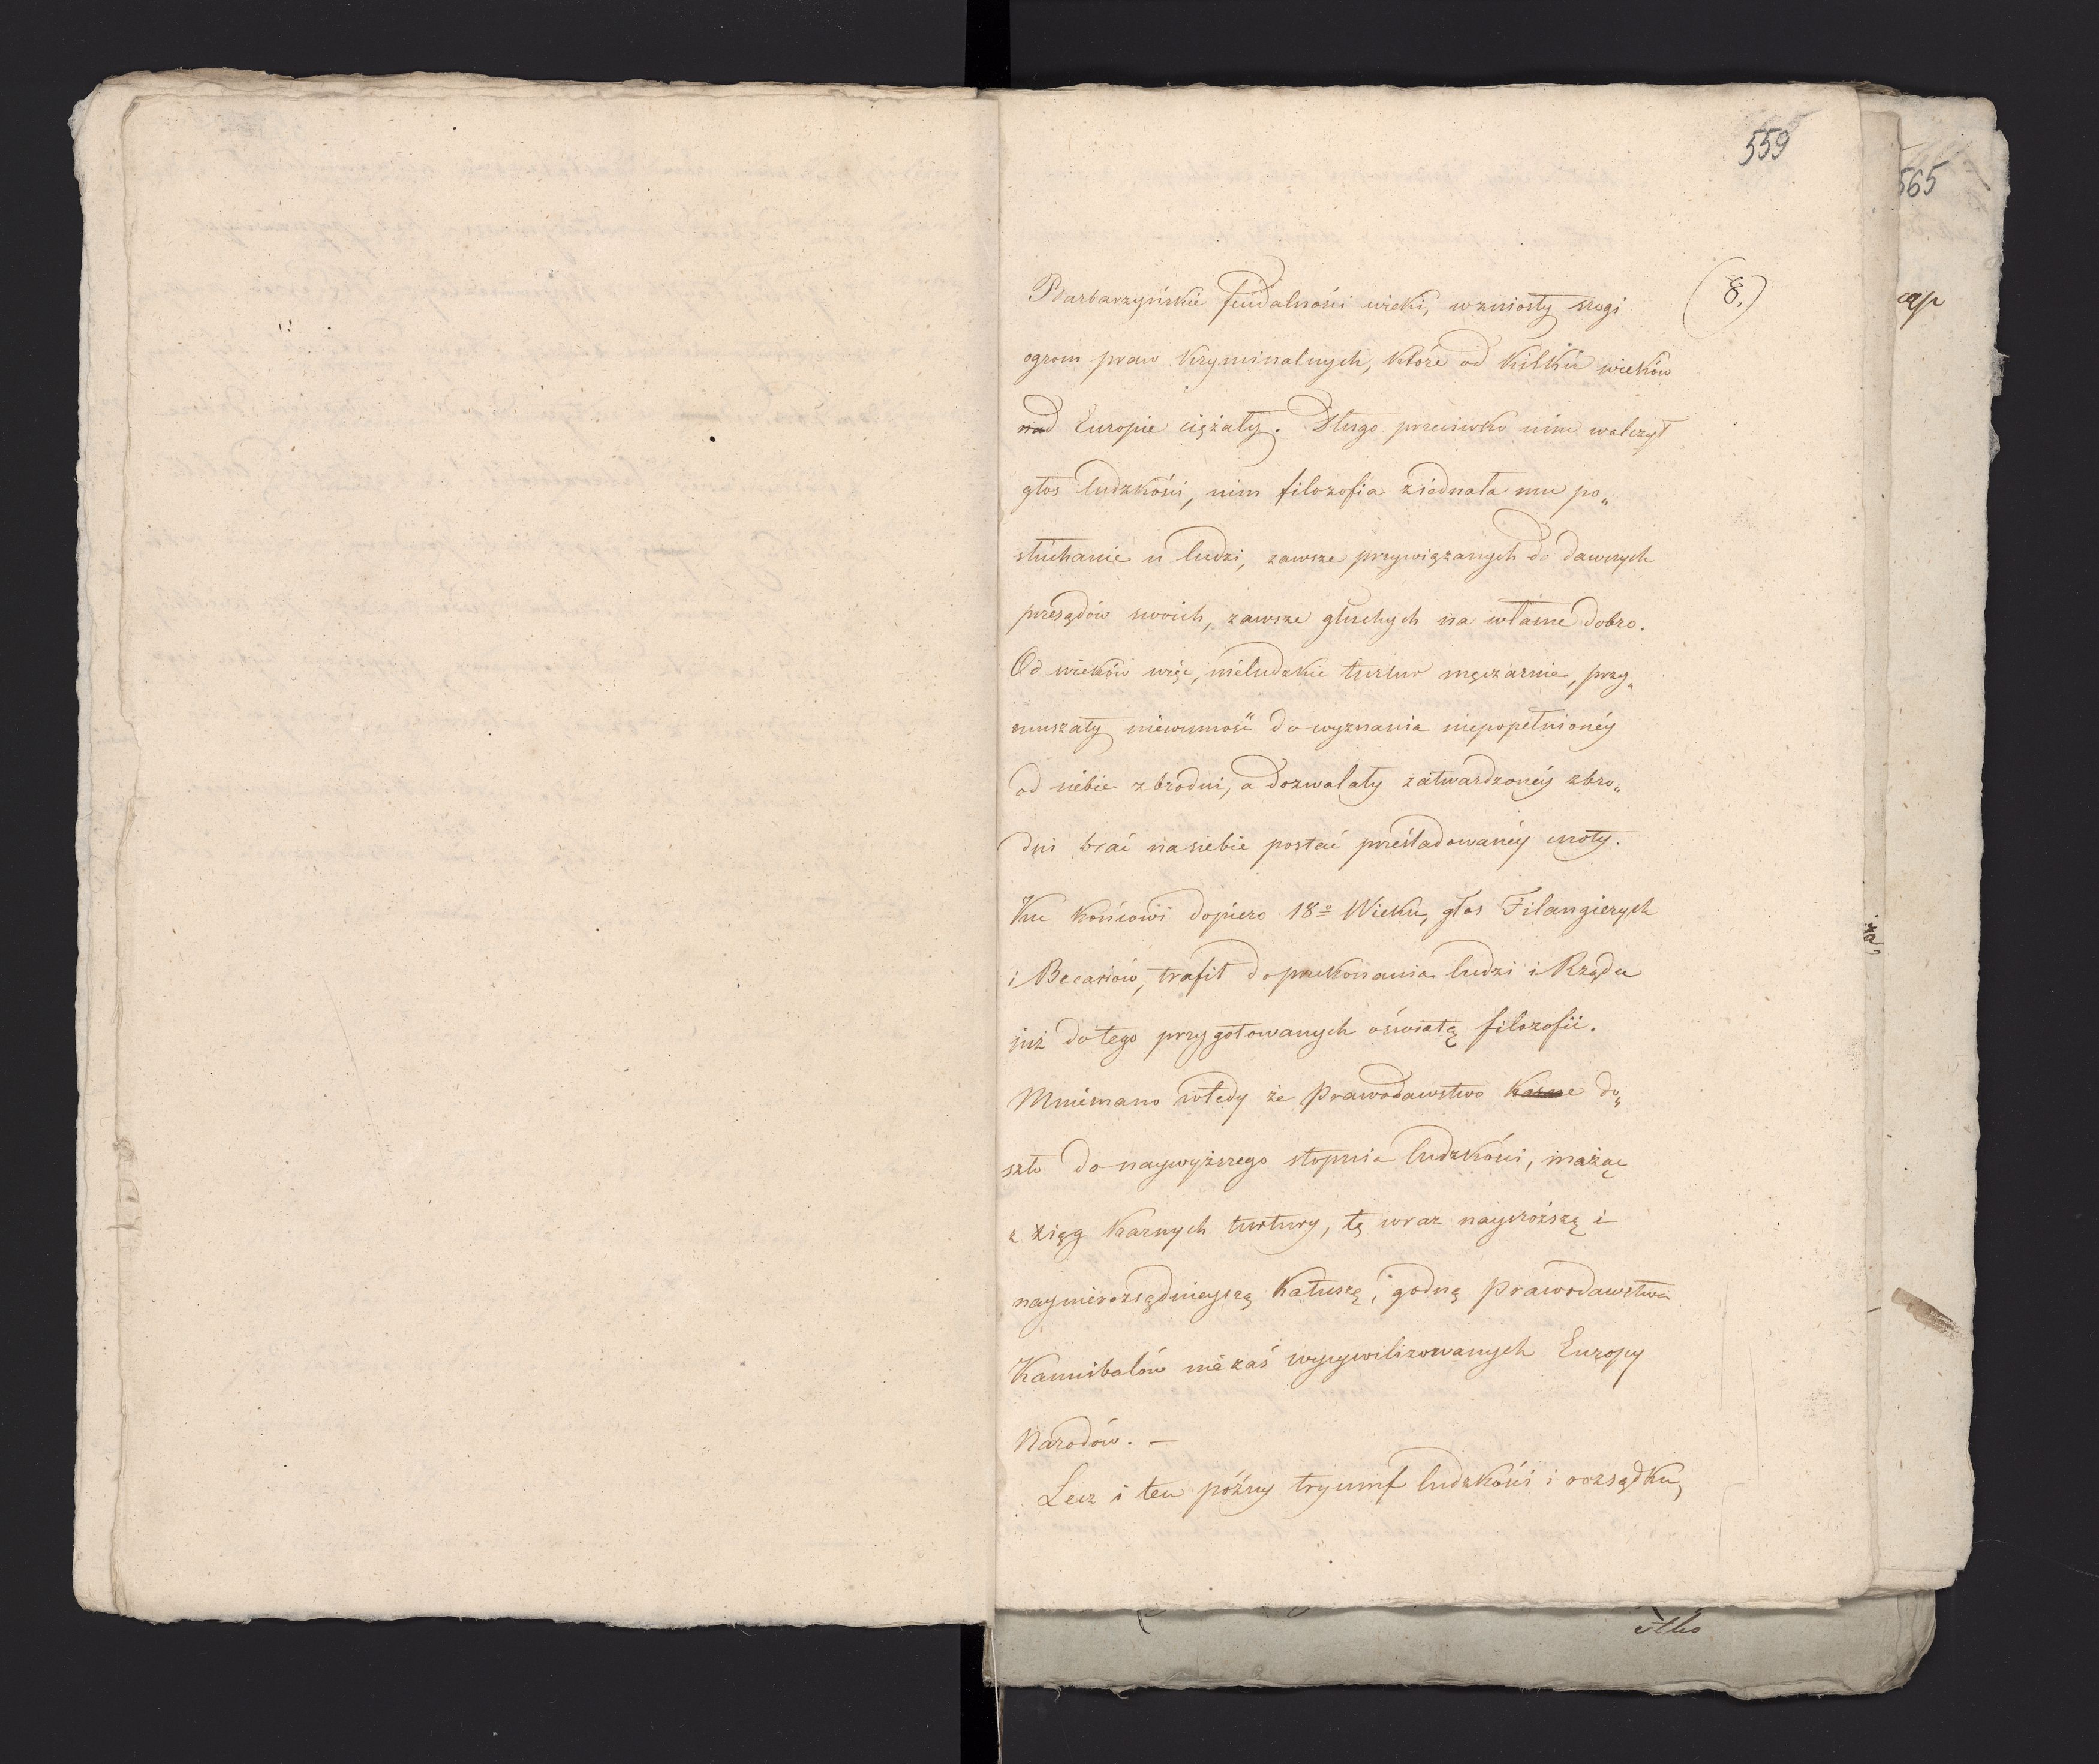 559
(8.)
Barbarzyńskie feudalności wieki, wzniosły srogi
ogrom praw kryminalnych, które od kilku wieków
nad Europie ciężały. Długo przeciwko nim walczył
głos ludzkości, nim filozofia ziednała mu po„
słuchanie u ludzi, zawsze przywiązanych do dawnych
przesądów swoich, zawsze głuchych na własne dobro.
Od wieków więc, nieludzkie tortur męczarnie, przy„
muszały niewinność do wyznania niepopełnionéy
od siebie zbrodni, a dozwalały zatwardzonéy zbro„
dni brać na siebie postać prześladowanéy cnoty.
Ku końcowi dopiero 18º Wieku, głos Filangierych
i Becariów, trafił do przekonania ludzi i Rządu
już do tego przygotowanych oświatą filozofii.
Mniemano wtedy że Prawodawstwo karne do„
szło do naywyższego stopnia ludzkości, mażąc
z xiąg karnych tortury, tę wraz naysroższą i
naynierozsądnieyszą katuszę, godną Prawodawstwa
Kannibalów nie zaś wycywilizowanych Europy
Narodów. —
Lecz i ten późny tryumf ludzkości i rozsądku,
565